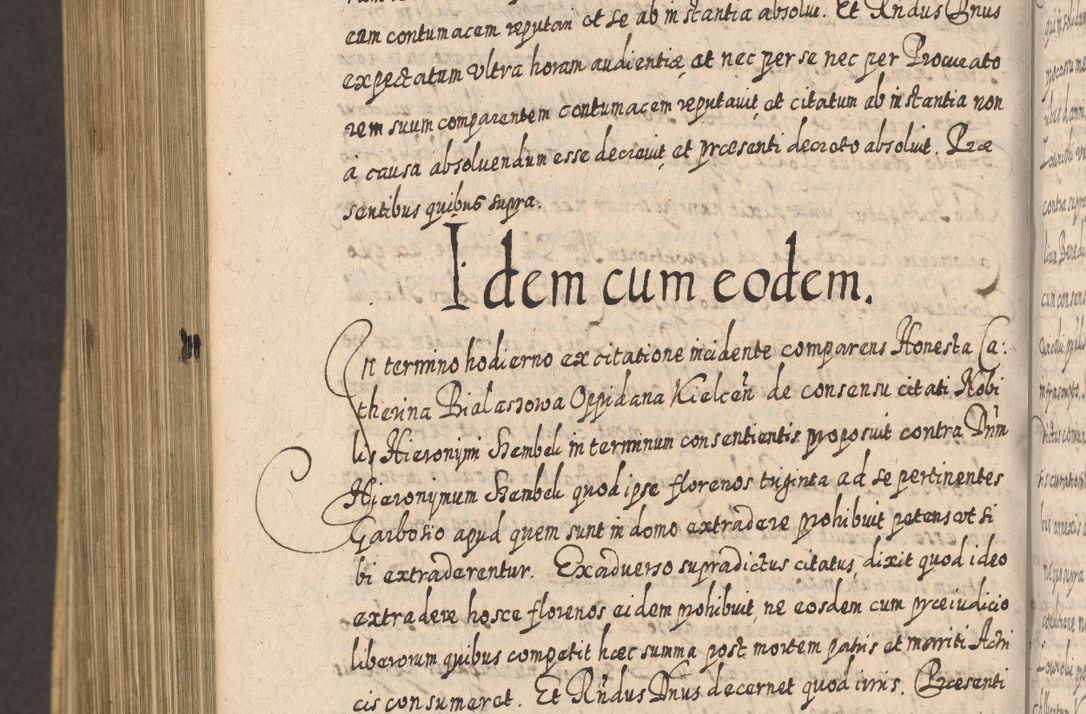 eam contumacem reputari et se ab instantia absolui. Et Rndus Dnus
expectatum vltra horam audientiæ et nec per se nec per Procurato
rem suum comparentem contumacem reputauit et citatum ab instantia non
a causa absoluendum esse decreuit et præsenti decreto absoluit. Præ
sentibus quibus supra.
Idem cum eodem.
In termino hodierno ex citatione incidente comparens Honesta Ca:
therina Bialaszowa Oppidana Kielceñ de consensu citati Nobi
lis Hieronijmi Szembek in terminum consentientis proposuit contra Dnm
Hieronymum Szembek quod ipse florenos triginta ad se pertinentes
Garbosio apud quem sunt in domo extradere prohibuit petens vt si
bi extraderentur. Ex aduerso supradictus citatus dixit quod ideo
extradere hosce florenos eidem prohibuit, ne eosdem cum præiudicio
liberorum quibus competit hæc summa post mortem patris et mariti Actri
cis consumeret. Et Rndus Dnus decernet quod iuris. Præsenti